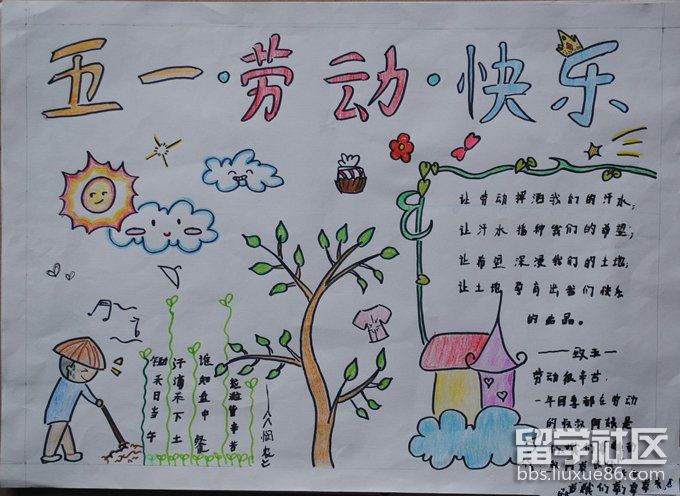 五一·劳动·快乐
让劳动挥洒我们的汗水;
让汗水播种我们的希望;
让希望深浸我们的土地;
让土地孕育出我们快乐
的出品。
——致五一
劳动最辛苦
一年四季都在劳动
的叔叔阿姨是
锄禾日当午
汗滴禾下土
谁知盘中餐
粒粒皆辛苦
——《悯农》
留学社区
bbs.liuxue86.com